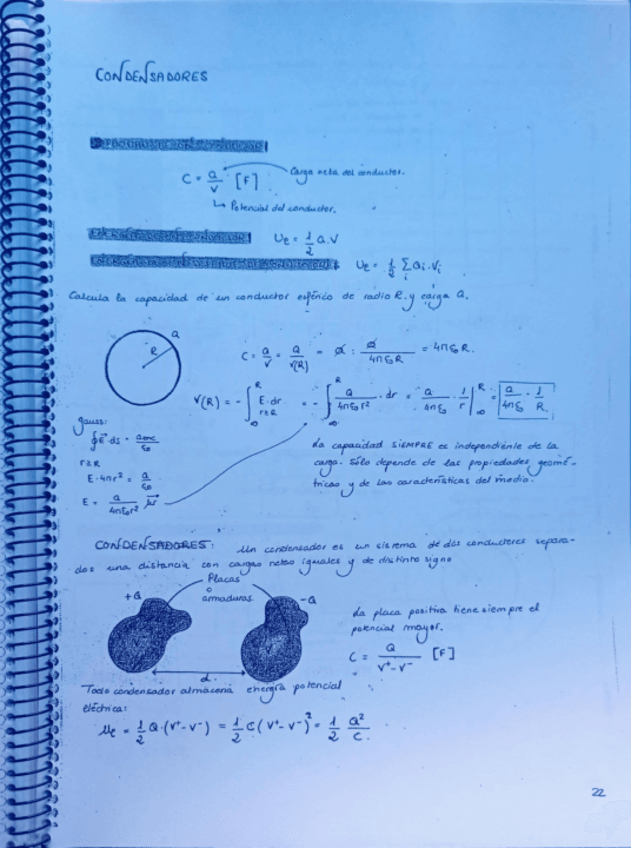 CONDENSADORES
C = Q/V [F] Carga neta del conductor.
↳ Potencial del conductor.
Ue = 1/2 Q.V
Ue = 1/2 Σi Qi.Vi
Calcula la capacidad de un conductor esférico de radio R y carga Q.
Q
R
C = Q/V = Q/V(R) = Q : Q/4πε0R = 4πε0R.
V(R) = - ∫∞^R E.dr r≥R = - ∫∞^R Q/4πε0r² . dr = Q/4πε0 . 1/r |∞^R = Q/4πε0 . 1/R.
Gauss:
∮E ds = Qenc/ε0
r≥R
E.4πr² = Q/ε0
E = Q/4πε0r²
La capacidad SIEMPRE es independiente de la
carga. Sólo depende de las propiedades geomé-
tricas y de las características del medio.
CONDENSADORES: Un condensador es un sistema de dos conductores separa-
dos una distancia con cargas netas iguales y de distinto signo
Placas
o
armaduras
+Q
-Q
d.
La placa positiva tiene siempre el
potencial mayor.
C = Q/V⁺-V⁻ [F]
Todo condensador almacena energía potencial
eléctrica:
Ue = 1/2 Q.(V⁺-V⁻) = 1/2 C(V⁺-V⁻)² = 1/2 Q²/C.
22